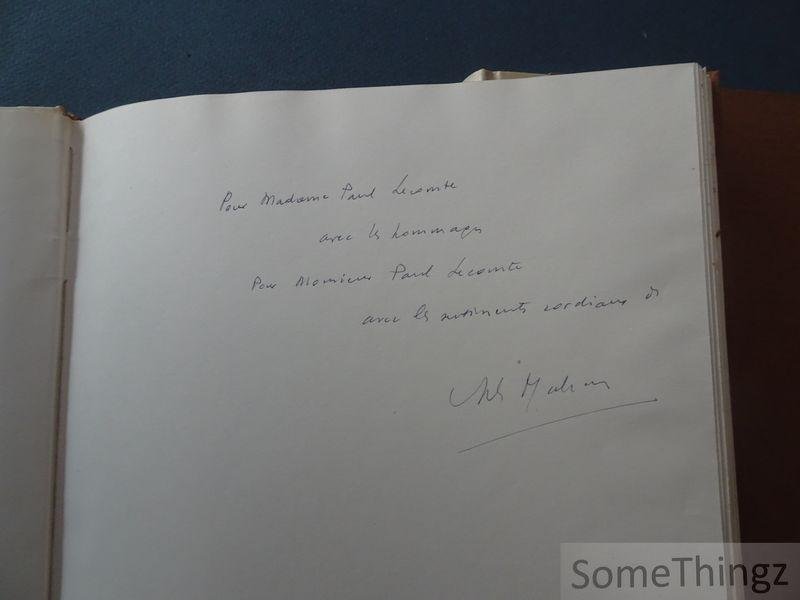 Pour Madame Paul Lecomte
avec les hommages
Pour Monsieur Paul Lecomte
avec les sentiments cordiaux de
SomeThingz